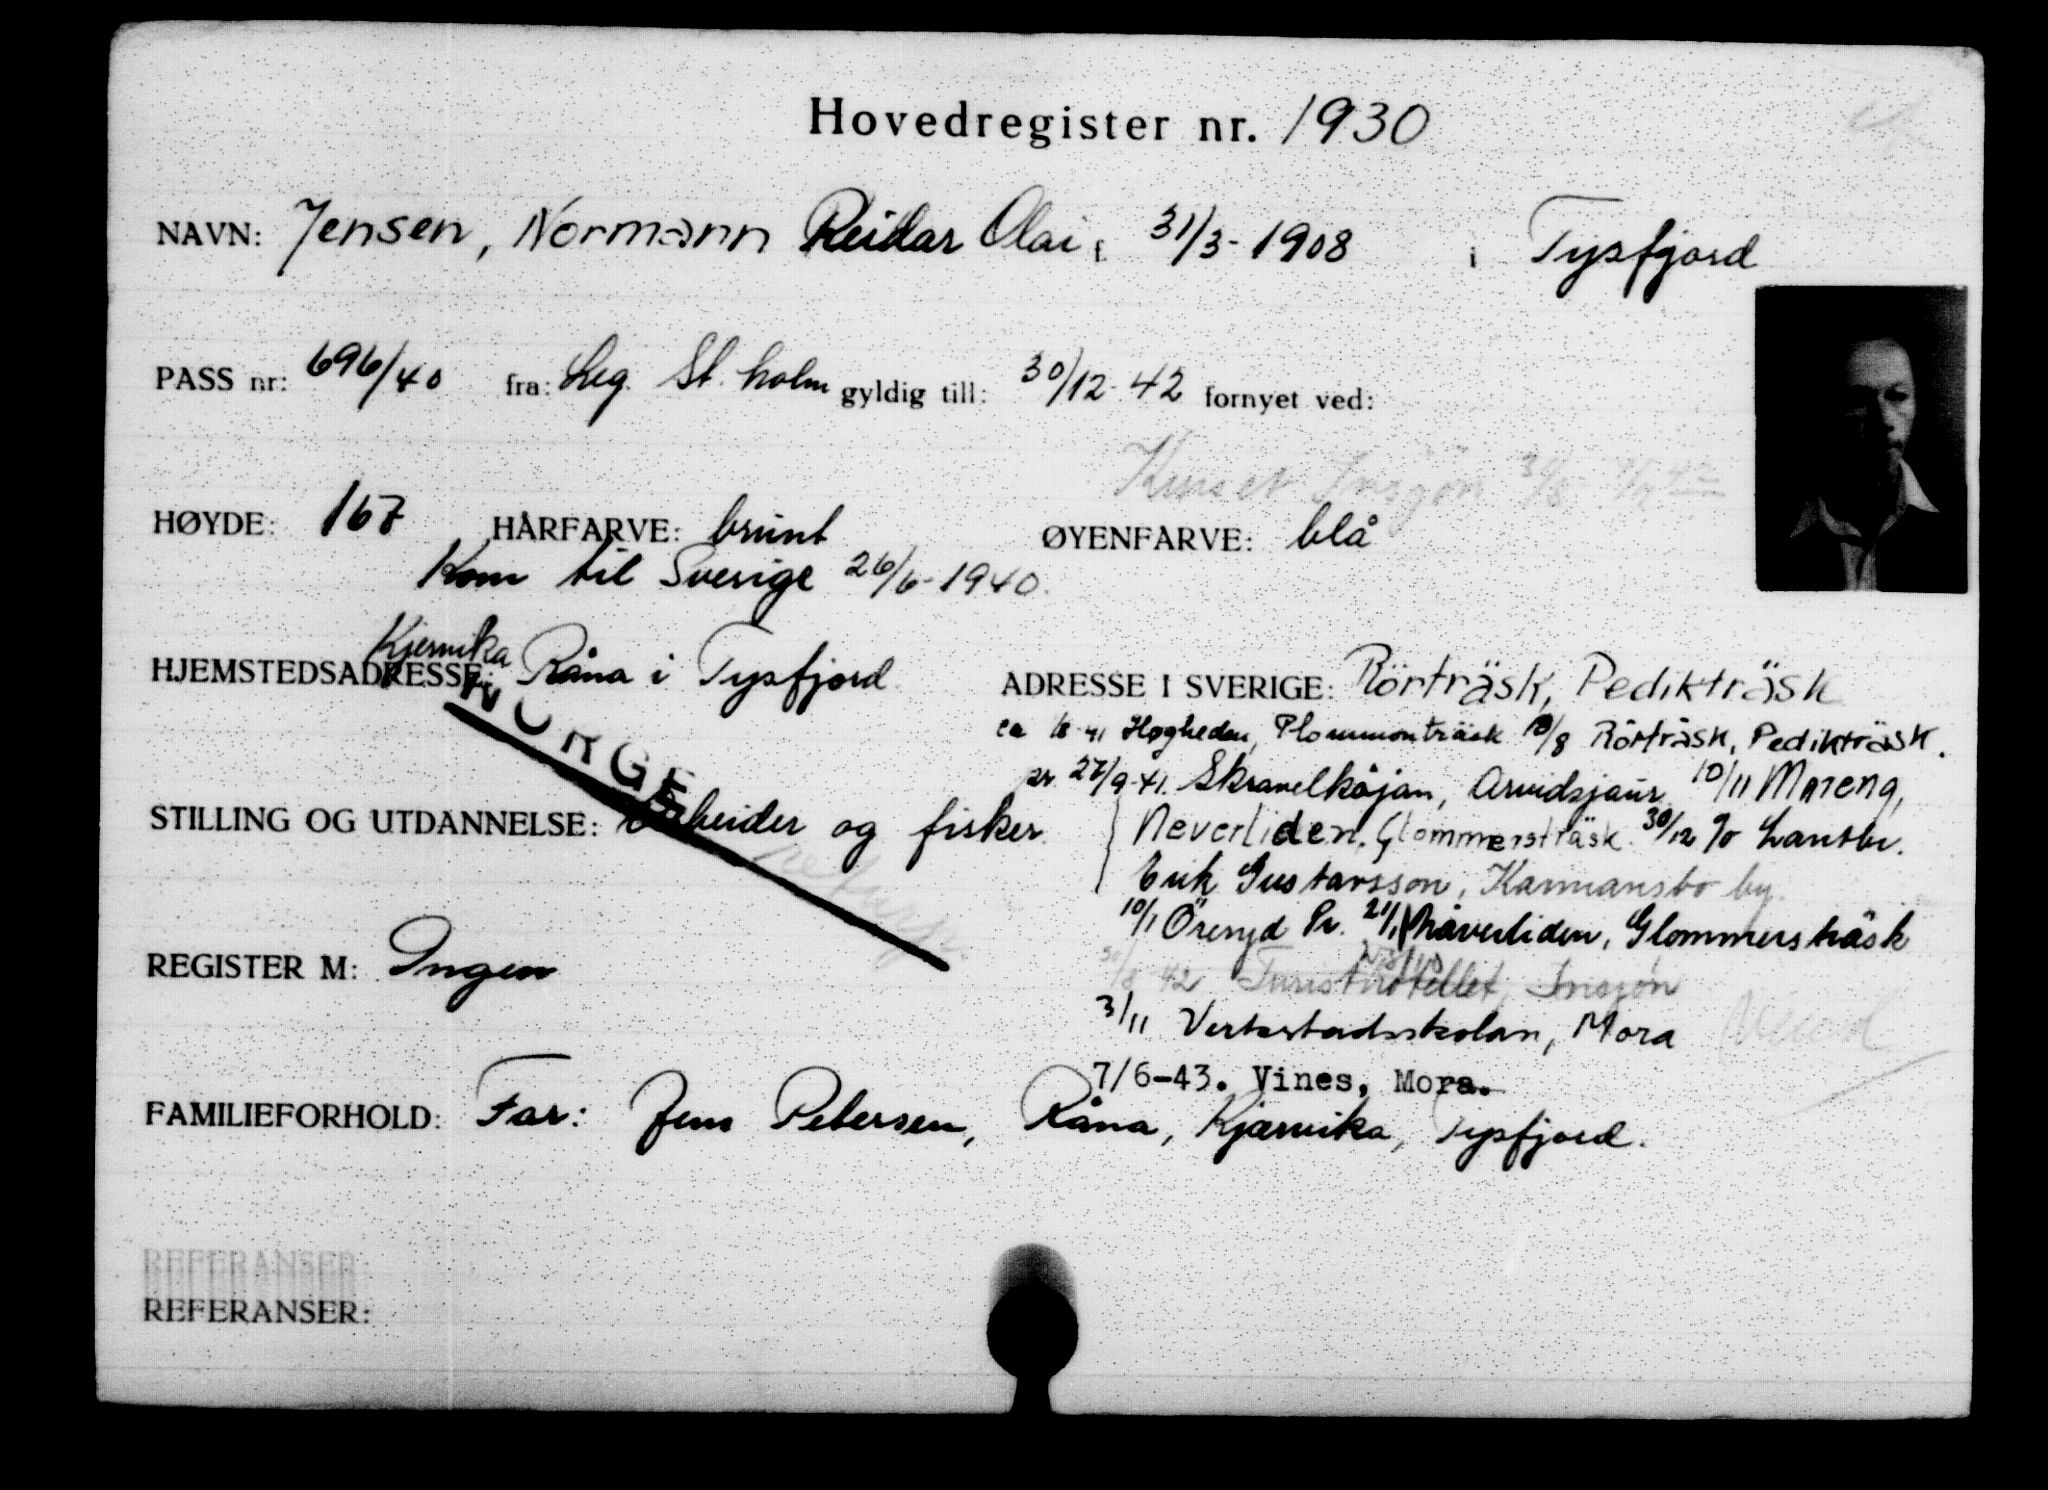 Hovedregister nr. 1930
NAVN: Jensen, Normann Reidar Olai f. 31/3-1908 i Tysfjord
PASS nr: 696/40 fra: Leg. St.holm gyldig till: 30/12-42 fornyet ved:
Kurset Insjön 30/8
HØYDE: 167 HÅRFARVE: brunt ØYENFARVE: blå
Kom til Sverige 26/6-1940.
Kjervika
HJEMSTEDSADRESSE: Råna i Tysfjord ADRESSE I SVERIGE: Rörträsk, Pedikträsk
NORGE
ca 1/8-41 Høgheden, Plommonträsk 18/8 Rörträsk, Pedikträsk.
pr. 27/9-41. Skravelkåjan, Arvidsjaur 10/11 Moreng,
STILLING OG UTDANNELSE: Arbeider og fisker.
Neverliden, Glommersträsk 30/12 c/o Lantbr.
Erik Gustavsson, Karmansbo by.
10/1 Örenyd Pr. 21/1 Nåverliden, Glommersträsk
REGISTER M: Ingen
30/8 42 Turisthotellet, Insjön
3/11 Verkstadsskolan, Mora
7/6-43. Vines, Mora.
FAMILIEFORHOLD: Far: Jens Petersen, Råna, Kjærvika, Tysfjord.
REFERANSER:
REFERANSER: